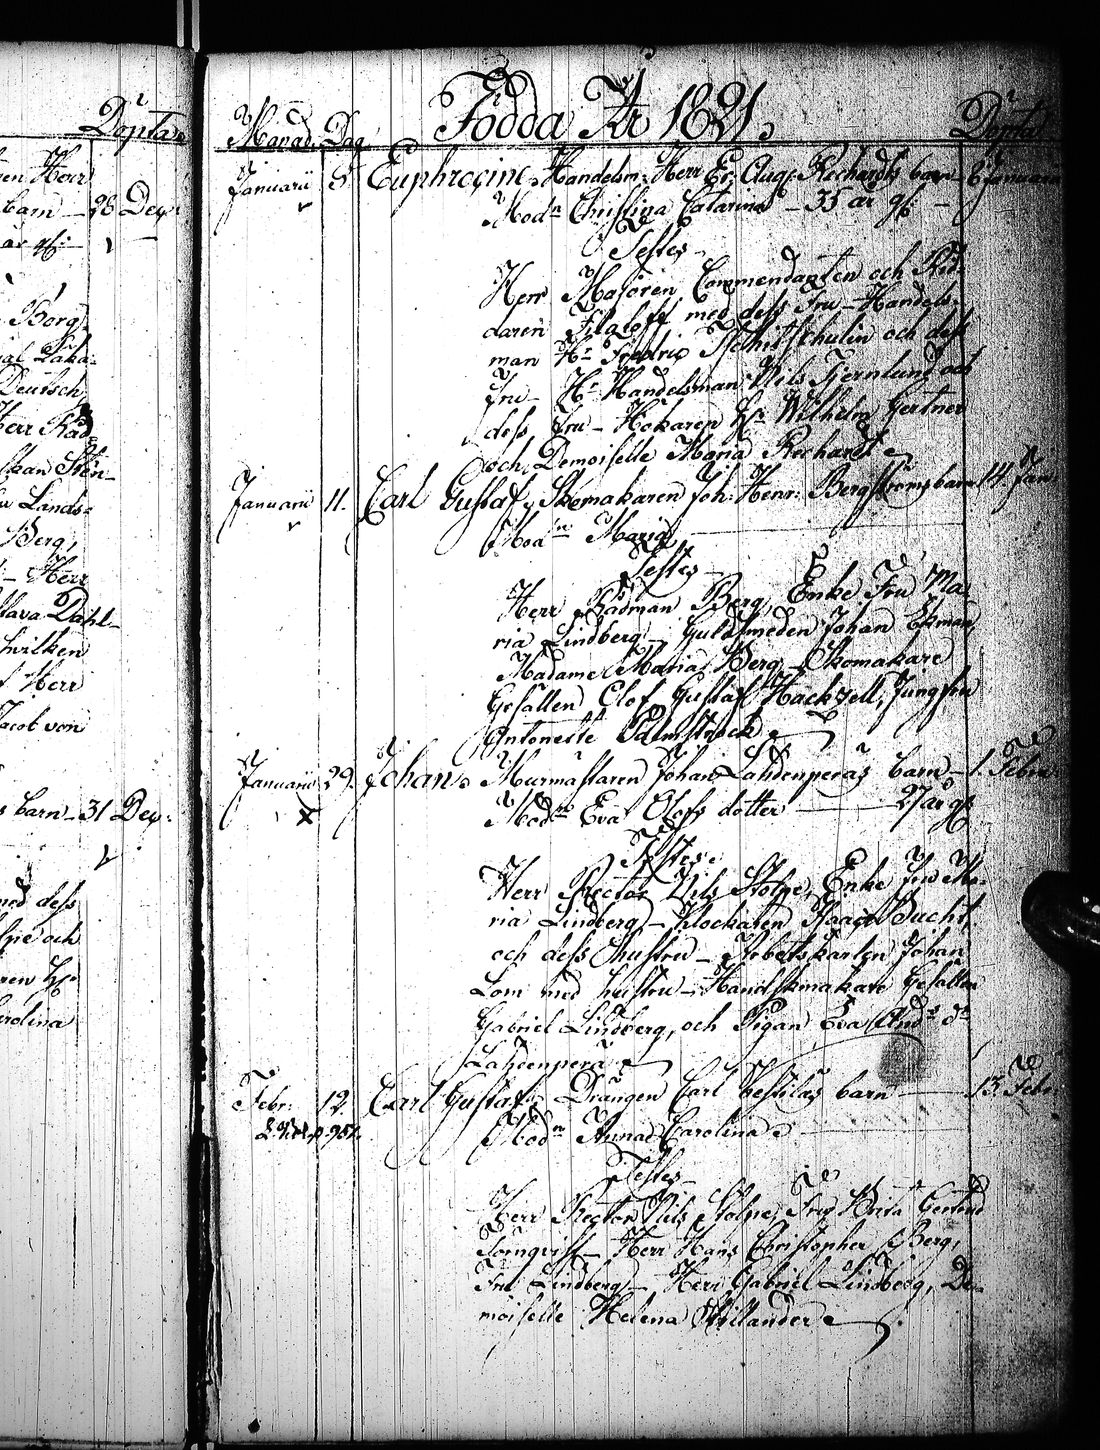 Döpta
28 Dec:
Borg
Deutsch
Herr Råd
Lands-
Berg,
Herr
Dahl-
hvilken
Herr
Jacob von
barn 31 Dec:
med dess
och
Carolina
Månad. Dag. Födda År 1821. Döpta
Januarii 5 Euphrosine. Handelsm: Herr Er: Aug: Rechardts barn 6 Januarii
Mod:n Christina Catarina 35 år gl:
Testes
Herr Majoren Commendanten och Rid-
daren med dess Fru Handels-
man H:r Fredric och dess
Fru H:r Handelsman Nils Tjernlund och
dess Fru Hökaren H:r Wilhelm Gertner
och Demoiselle Maria Rechardt
Januarii 11. Carl Gustaf, Skomakaren Joh: Henr: Bergströms barn 14. Jan:
Mod:n Maria
Testes
Herr Rådman Berg, Enke Fru Ma-
ria Lindberg Guldsmeden Johan Ekman,
Madame Maria Berg Skomakare
Gesällen Olof Gustaf Hackzell, Jungfru
Antonette Palmstrock
Januarii 29. Johan. Murmästaren Johan Lahdenperäs barn 1. Febru:
Mod:n Eva Olofs dotter 27 år gl:
Testes:
Herr Rector Nils Stolpe, Enke fru Ma-
ria Lindberg, Klockaren Isaac Bucht,
och dess hustru Arbetskarlen Johan
Lom med hustru Handskmakare Gesällen
Gabriel Lindberg, och Pigan Eva And:s d:r
Lahdenperä
Febr: 12. Carl Gustaf. Drängen Carl barn 13. Febr:
Mod:n Anna Carolina
Testes
Herr Rector Nils Stolpe, Fru Brita Gertrud
Törnqvist Herr Hans Christopher Berg,
Fru Lindberg Herr Gabriel Lindberg, De-
moiselle Helena Willander